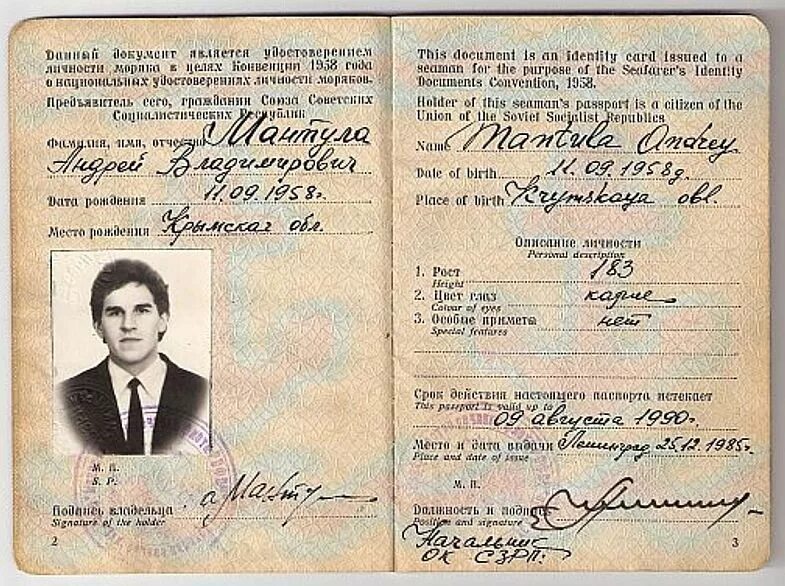 Данный документ является удостоверением
личности моряка в целях Конвенции 1958 года
о национальных удостоверениях личности моряков.
Предъявитель сего, гражданин Союза Советских
Социалистических Республик
Фамилия, имя, отчество Мантула
Андрей Владимирович
Дата рождения 11.09.1958г.
Место рождения Крымская обл.
М. П.
S. P.
Подпись владельца
Signature of the holder
2
This document is an identity card issued to a
seaman for the purpose of the Seafarer's Identity
Documents Convention, 1958.
Holder of this seaman's passport is a citizen of the
Union of the Soviet Socialist Republics
Name Mantula Andrey
Date of birth 11.09.1958g.
Place of birth Krymskaya obl.
Описание личности
Personal description
1. Рост 183
Height
2. Цвет глаз карие
Colour of eyes
3. Особые приметы нет
Special features
Срок действия настоящего паспорта истекает
This passport is valid up to
09 августа 1990г.
Место и дата выдачи Ленинград 25.12.1985г.
Place and date of issue
М. П.
Должность и подпись
Position and signature
Начальник
ОК СЗРП.
3